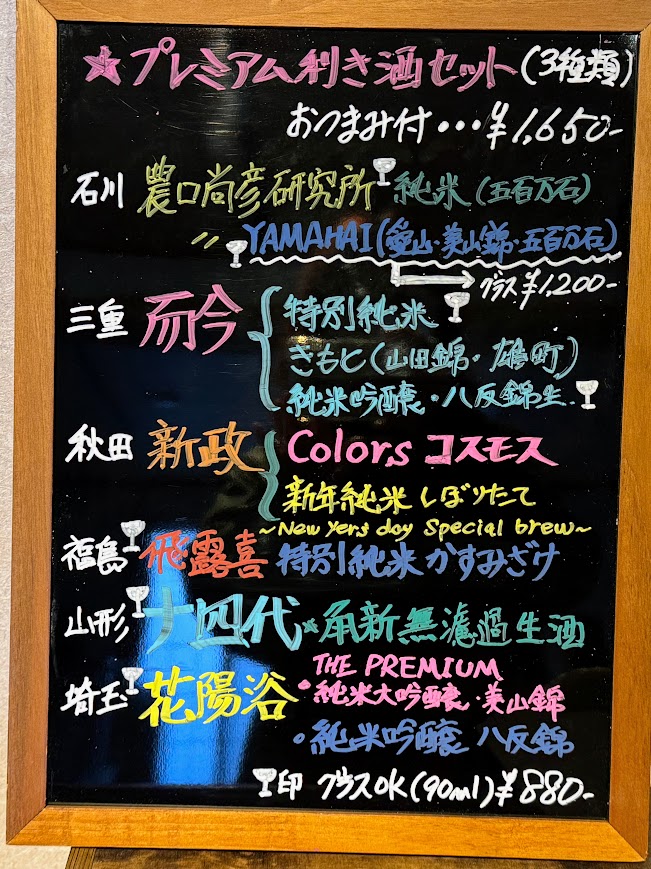 ★プレミアム利き酒セット(3種類)
おつまみ付・・・¥1,650-
石川 農口尚彦研究所 純米(五百万石)
〃 YAMAHAI(愛山・美山錦・五百万石)
グラス¥1,200-
三重 而今 特別純米
きもと(山田錦・雄町)
純米吟醸・八反錦生
秋田 新政 Colors コスモス
新年純米 しぼりたて
~New Yers day Special brew~
福島 飛露喜 特別純米 かすみざけ
山形 十四代 ★角新無濾過生酒
埼玉 花陽浴 THE PREMIUM
・純米大吟醸・美山錦
・純米吟醸 八反錦
印 グラスOK(90ml)¥880-